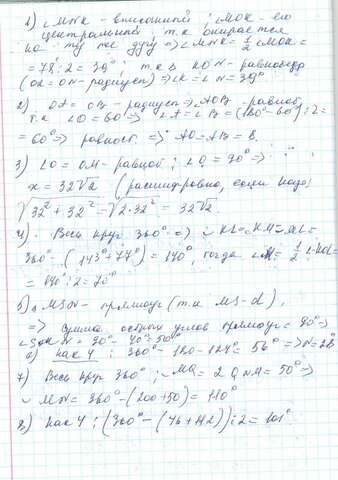 1) ∠MNK - вписанный; ∠MOK - его
центральный, т.к. опирается
на ту же дугу => ∠MNK = 1/2 ∠MOK =
= 78:2 = 39°; т.к. KON - равнобедр
(OK = ON - радиусы) => ∠K = ∠N = 39°
2) OA = OB - радиусы => AOB - равноб.
т.к. ∠O = 60° => ∠A = ∠B = (180° - 60°):2 =
= 60° => равност. => AO = AB = 8.
3) LO = OM - равноб; ∠O = 90° =>
x = 32√2 (расшифровка, если надо)
√32² + 32² = √2·32² = 32√2
4) Весь круг 360° =>
360° - (143° + 77°) = 140°, тогда = 1/2
= 140°:2 = 70°
5) MSN - прямоуг (т.к. MS - d),
=> Сумма острых углов прямоуг = 90° =>
N = 90° - 40° = 50°
6) как 4; 360° - 180 - 124° = 56° => N = 28°
7) Весь круг 360°; ◡MQ = 2 QNM = 50° =>
◡ MN = 360° - (200 + 50) = 110°
8) как 4; (360° - (46 + 112)):2 = 101°